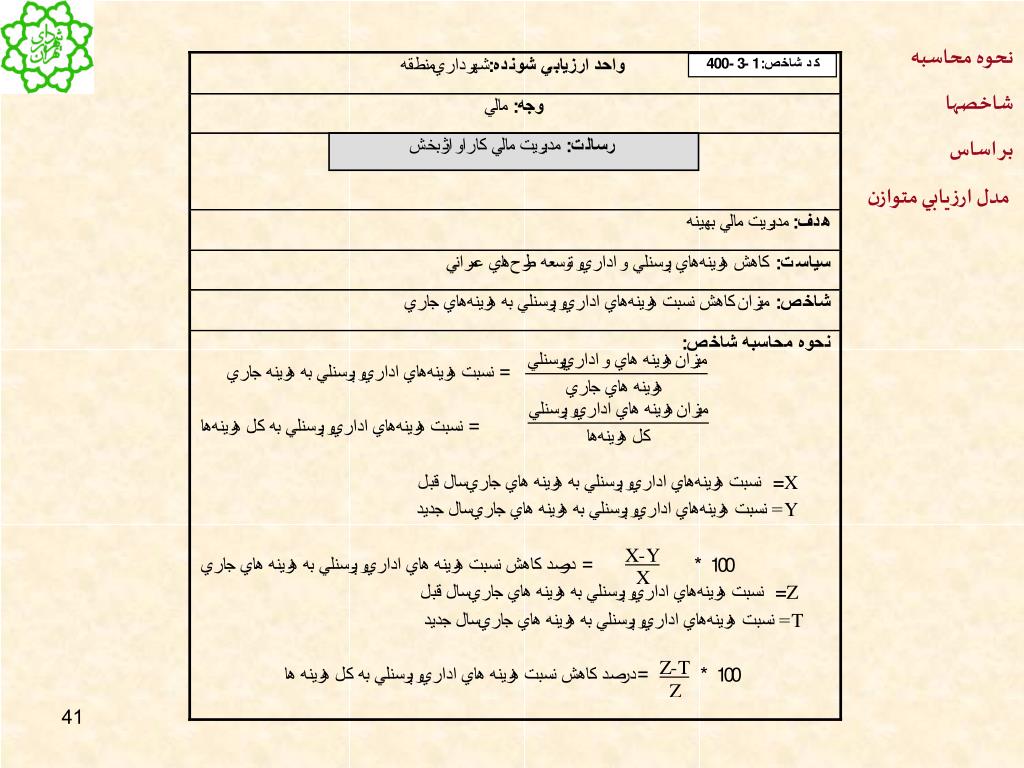 نحوه محاسبه
شاخصها
بر اساس
مدل ارزيابي متوازن
کد شاخص: 1 -3 -400
واحد ارزيابي شونده: شهرداري منطقه
وجه: مالي
رسالت: مديريت مالي کارا و اثربخش
هدف: مديريت مالي بهينه
سياست: کاهش هزينه‌هاي پرسنلي و اداري و توسعه طرح‌هاي عمراني
شاخص: ميزان کاهش نسبت هزينه‌هاي اداري و پرسنلي به هزينه‌هاي جاري
نحوه محاسبه شاخص:
ميزان هزينه هاي و اداري پرسنلي
= نسبت هزينه‌هاي اداري و پرسنلي به هزينه جاري
هزينه هاي جاري
ميزان هزينه هاي اداري و پرسنلي
= نسبت هزينه‌هاي اداري و پرسنلي به کل هزينه‌ها
کل هزينه‌ها
X= نسبت هزينه‌هاي اداري و پرسنلي به هزينه هاي جاري سال قبل
Y= نسبت هزينه‌هاي اداري و پرسنلي به هزينه هاي جاري سال جديد
X-Y
100 * = درصد کاهش نسبت هزينه هاي اداري و پرسنلي به هزينه هاي جاري
X
Z= نسبت هزينه‌هاي اداري و پرسنلي به هزينه هاي جاري سال قبل
T= نسبت هزينه‌هاي اداري و پرسنلي به هزينه هاي جاري سال جديد
Z-T
100 * = درصد کاهش نسبت هزينه هاي اداري و پرسنلي به کل هزينه ها
Z
41
شهرداري تهران